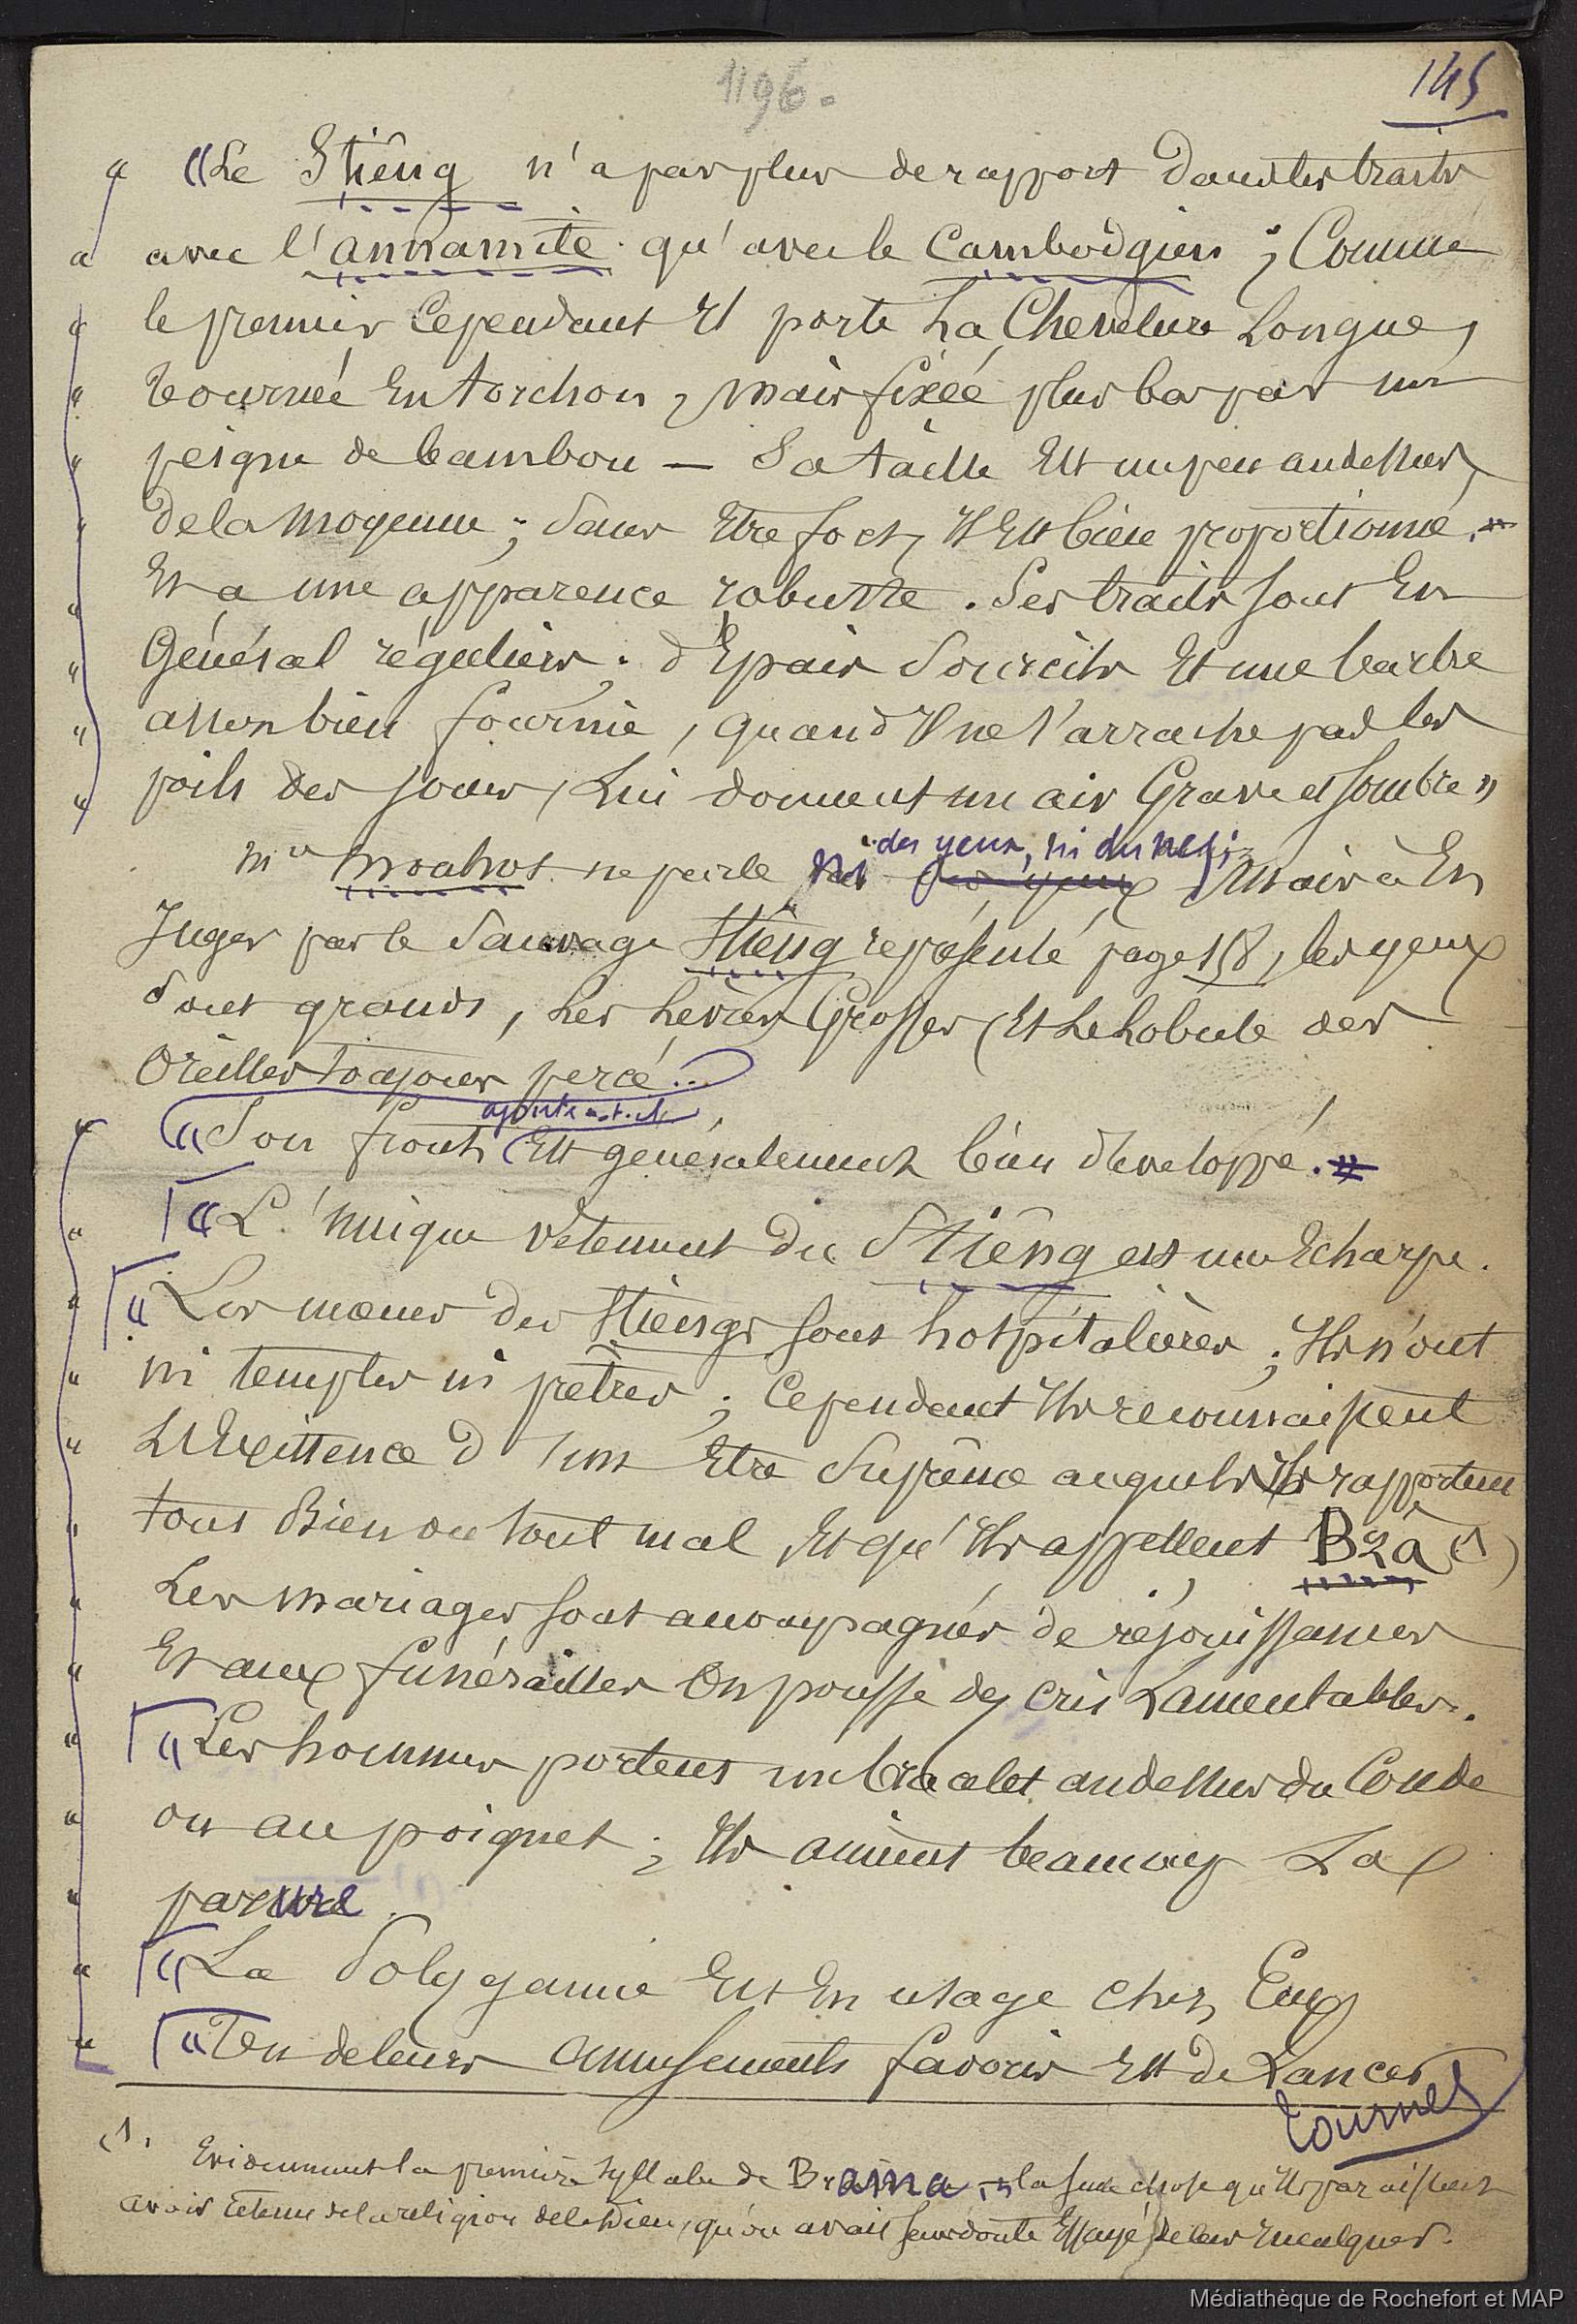 1196.
145
« «Le Stiêng n'a pas plus de rapport dans les traits
« avec l'annamite qu'avec le Cambodgien ; Comme
« le premier Cependant Il porte La Chevelure Longue,
« tournée En torchon, mais fixée plus bas par un
« peigne de bambou — Sa taille Est un peu au dessus
« de la moyenne ; Sans Etre fort, Il Est bien proportionné.
« Et a une apparence robuste. Ses traits sont En
« Général réguliers ; d'Epais Sourcils Et une barbe
« assez bien fournie, quand Il ne s'arrache pas les
« poils des joues, Lui donnent un air Grave et Sombre »
des yeux, ni du nez ;
Mr Mouhot ne parle ni des yeux Mais à En
Juger par le Sauvage Stiêng représenté page 158, les yeux
Sont grands, Les Lèvres Grosses, Et Le Lobule des
Oreilles toujours percé...
ajoute-t-il
« «Son front, Est généralement bien développé.
« «L'unique vêtement du Stiêng est une Echarpe.
« «Les mœurs des Stiengs sont hospitalières ; Ils n'ont
« ni temples ni prêtres ; Cependant Ils reconnaissent
« L'Existence d'un Etre Suprême auquel Ils rapportent
« tout Bien ou tout mal, Et qu'Ils appellent Brâ (1)
« Les mariages sont accompagnés de réjouissances
« Et aux funérailles On pousse des cris Lamentables.
« «Les hommes portent un bracelet au dessus du Coude
« ou au poignet ; Ils aiment beaucoup La
« parure.
« «La Polygamie Est En usage chez Eux
« «Un de leurs amusements favoris Est de Lancer
Tournez
(1. Evidemment la première Syllabe de Brama, la seule chose qu'Ils paraissent
avoir retenue de la religion de ce Dieu, qu'on avait sans doute Essayé de leur Inculquer.
Médiathèque de Rochefort et MAP